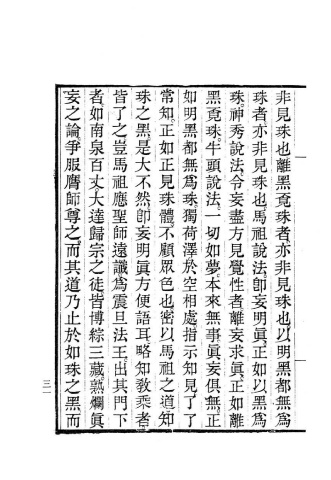 非見珠也離黑覓珠者亦非見珠也以明黑都無爲
珠者亦非見珠也馬祖說法卽妄明眞正如以黑爲
珠神秀說法令妄盡方見覺性者離妄求眞正如離
黑覓珠牛頭說法一切如夢本來無事眞妄俱無正
如明黑都無爲珠獨荷澤於空相處指示知見了了
常知正如正見珠體不顧眾色也密以馬祖之道如
珠之黑是大不然卽妄明眞方便語耳略知敎乘者
皆了之豈馬祖應聖師遠讖爲震旦法王出其門下
者如南泉百丈大達歸宗之徒皆博綜三藏熟爛眞
妄之論爭服膺師尊之而其道乃止於如珠之黑而
三一